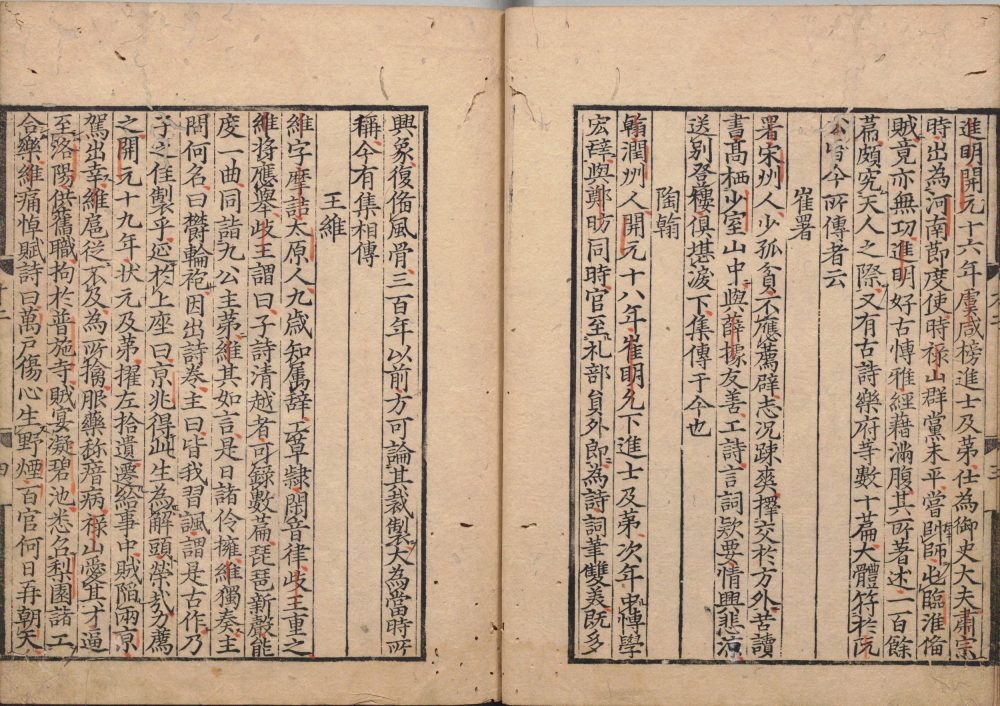 進明開元十六年虞咸榜進士及第仕為御史大夫肅宗
時出為河南節度使時禄山群黨未平嘗帥師屯臨淮俻
賊竟亦無功進明好古愽雅經藉滿腹其所著述一百餘
篇頗究天人之際又有古詩樂府等數十篇大體符於阮
公皆今所傳者云
崔署
署宋州人少孤貧不應薦辟志况疎爽擇交於方外苦讀
書髙栖少室山中與薛據友善工詩言詞欵要情興悲涼
送别登樓俱堪淚下集傳于今也
陶翰
翰潤州人開元十八年崔明允下進士及第次年中愽學
宏辤與鄭昉同時官至礼部貟外郎為詩詞筆雙美既多
興象復俻風骨三百年以前方可論其裁製大為當時所
稱今有集相傳
王維
維字摩詰太原人九歳知属辞工草隷閑音律岐王重之
維将應舉岐王謂曰子詩清越者可録數篇琵琶新聲能
度一曲同詣九公主第維其如言是日諸伶擁維獨奏主
問何名曰欝輪袍因出詩卷主曰皆我習諷謂是古作乃
子之佳製乎延於上座曰京兆得此生為解頭榮哉力薦
之開元十九年状元及第擢左拾遺遷給事中賊陷兩京
駕出幸維扈從不及為所擒服藥称瘖病禄山愛其才逼
至洛陽供舊職拘於普施寺賊宴凝碧池悉召梨園諸工
合樂維痛悼賦詩曰萬戸傷心生野煙百官何日再朝天
十二
四
三